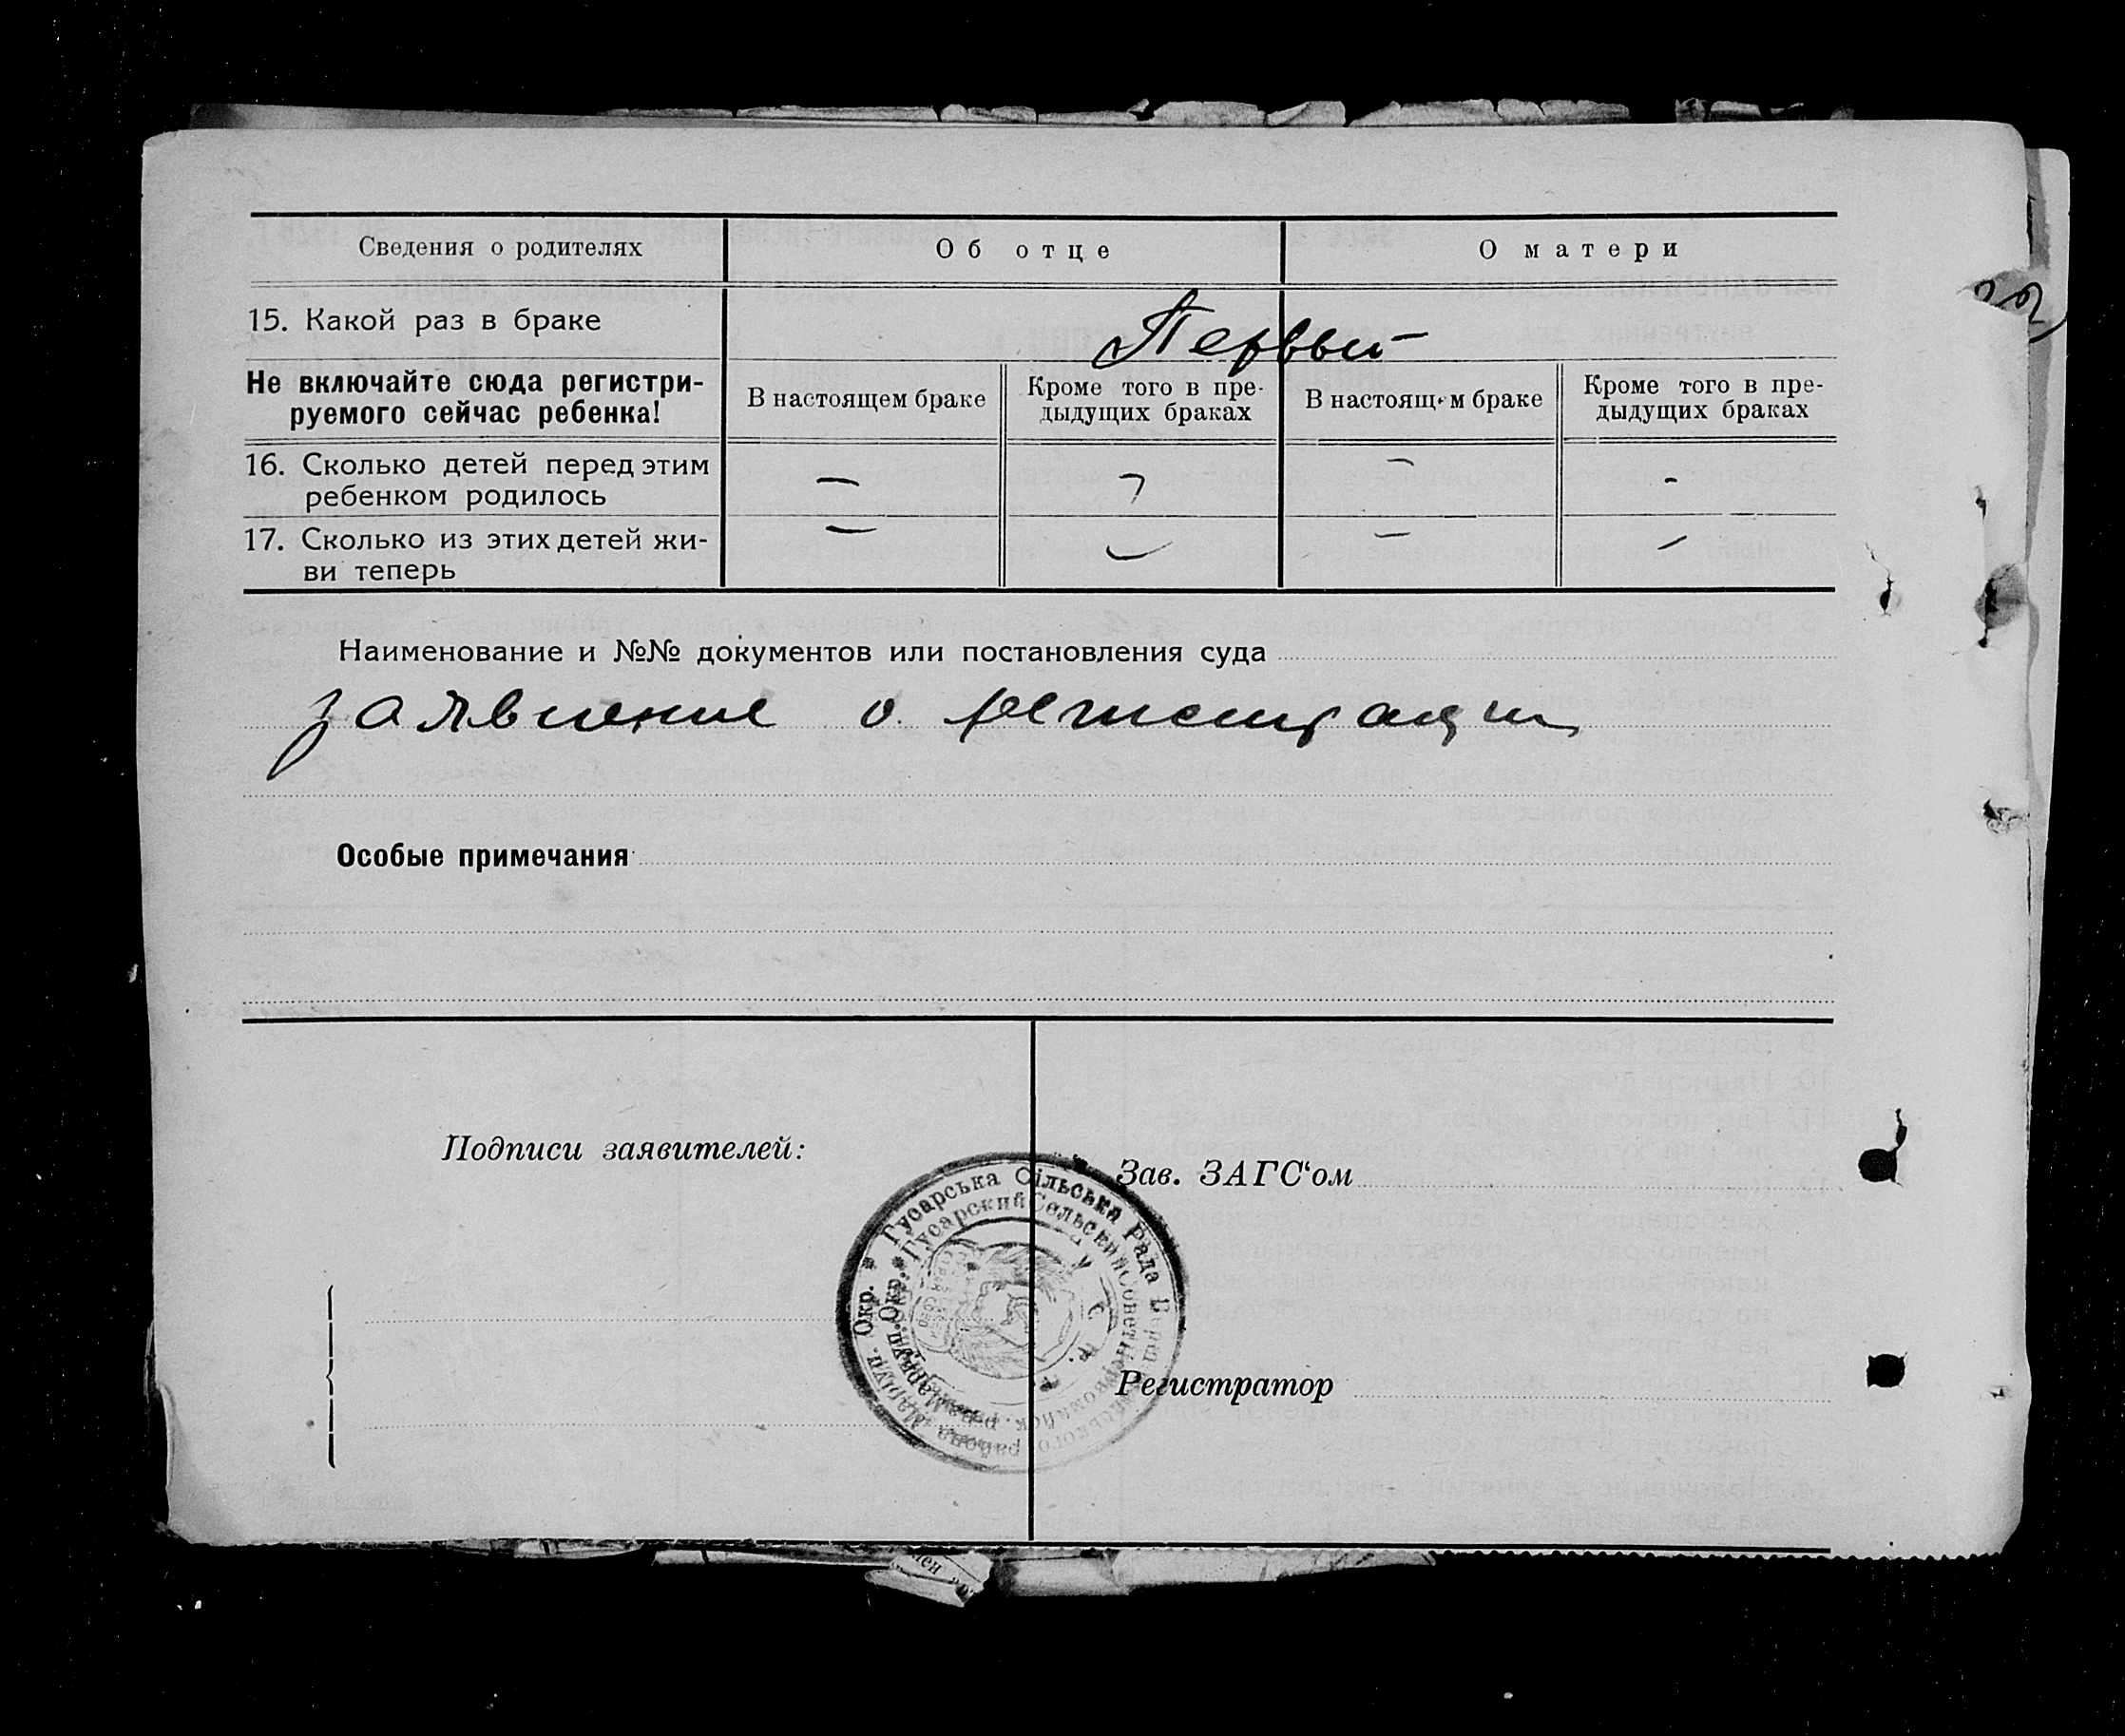 Сведения о родителях Об отце О матери
15. Какой раз в браке Первый
Не включайте сюда регистри-
руемого сейчас ребенка!
В настоящем браке
Кроме того в пре-
дыдущих браках
В настоящем браке
Кроме того в пре-
дыдущих браках
16. Сколько детей перед этим
ребенком родилось — — — -
17. Сколько из этих детей жи-
ви теперь — — — —
Наименование и №№ документов или постановления суда
заявление о регистрации
Особые примечания
Подписи заявителей:
Зав. ЗАГС‘ом
Регистратор
Гусарська Сільська Рада
района Маріуп. Окр.
Гусарский Сельский Совет
Мариуп. Окр.
У С Р Р